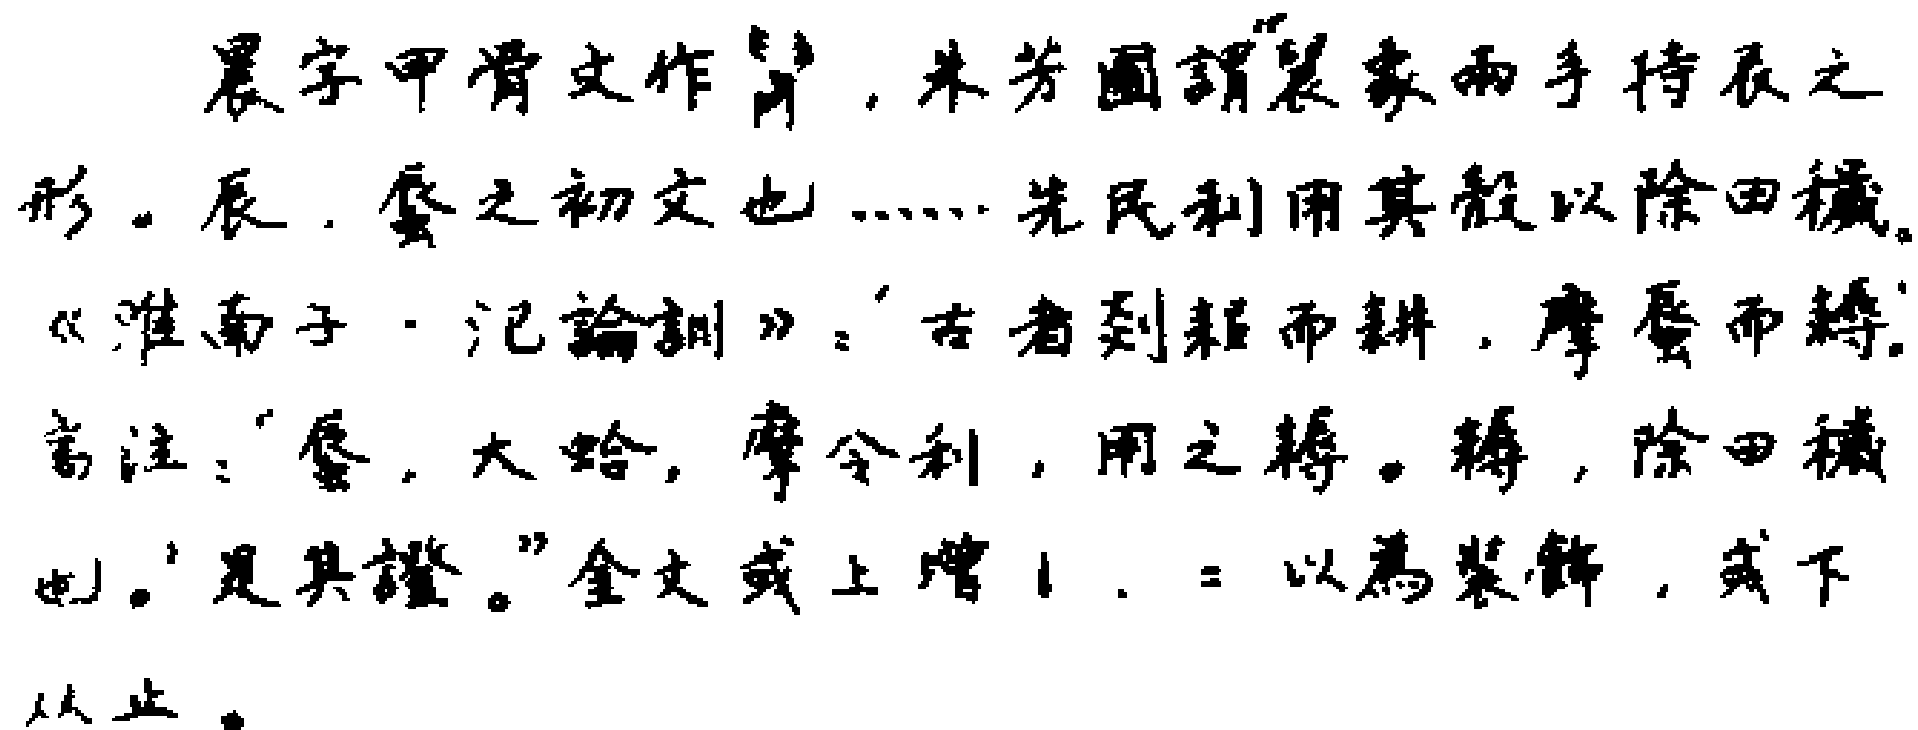 晨字甲骨文作，朱芳圃謂“晨象兩手持辰之
形。辰，蜃之初文也……先民利用其殼以除田穢。
《淮南子·氾論訓》：‘古者剡耜而耕，摩蜃而耨。’
高注：‘蜃，大蛤，摩令利，用之耨。耨，除田穢
也。’是其證。”金文或上增丨、．、=以為裝飾，或下
从止。